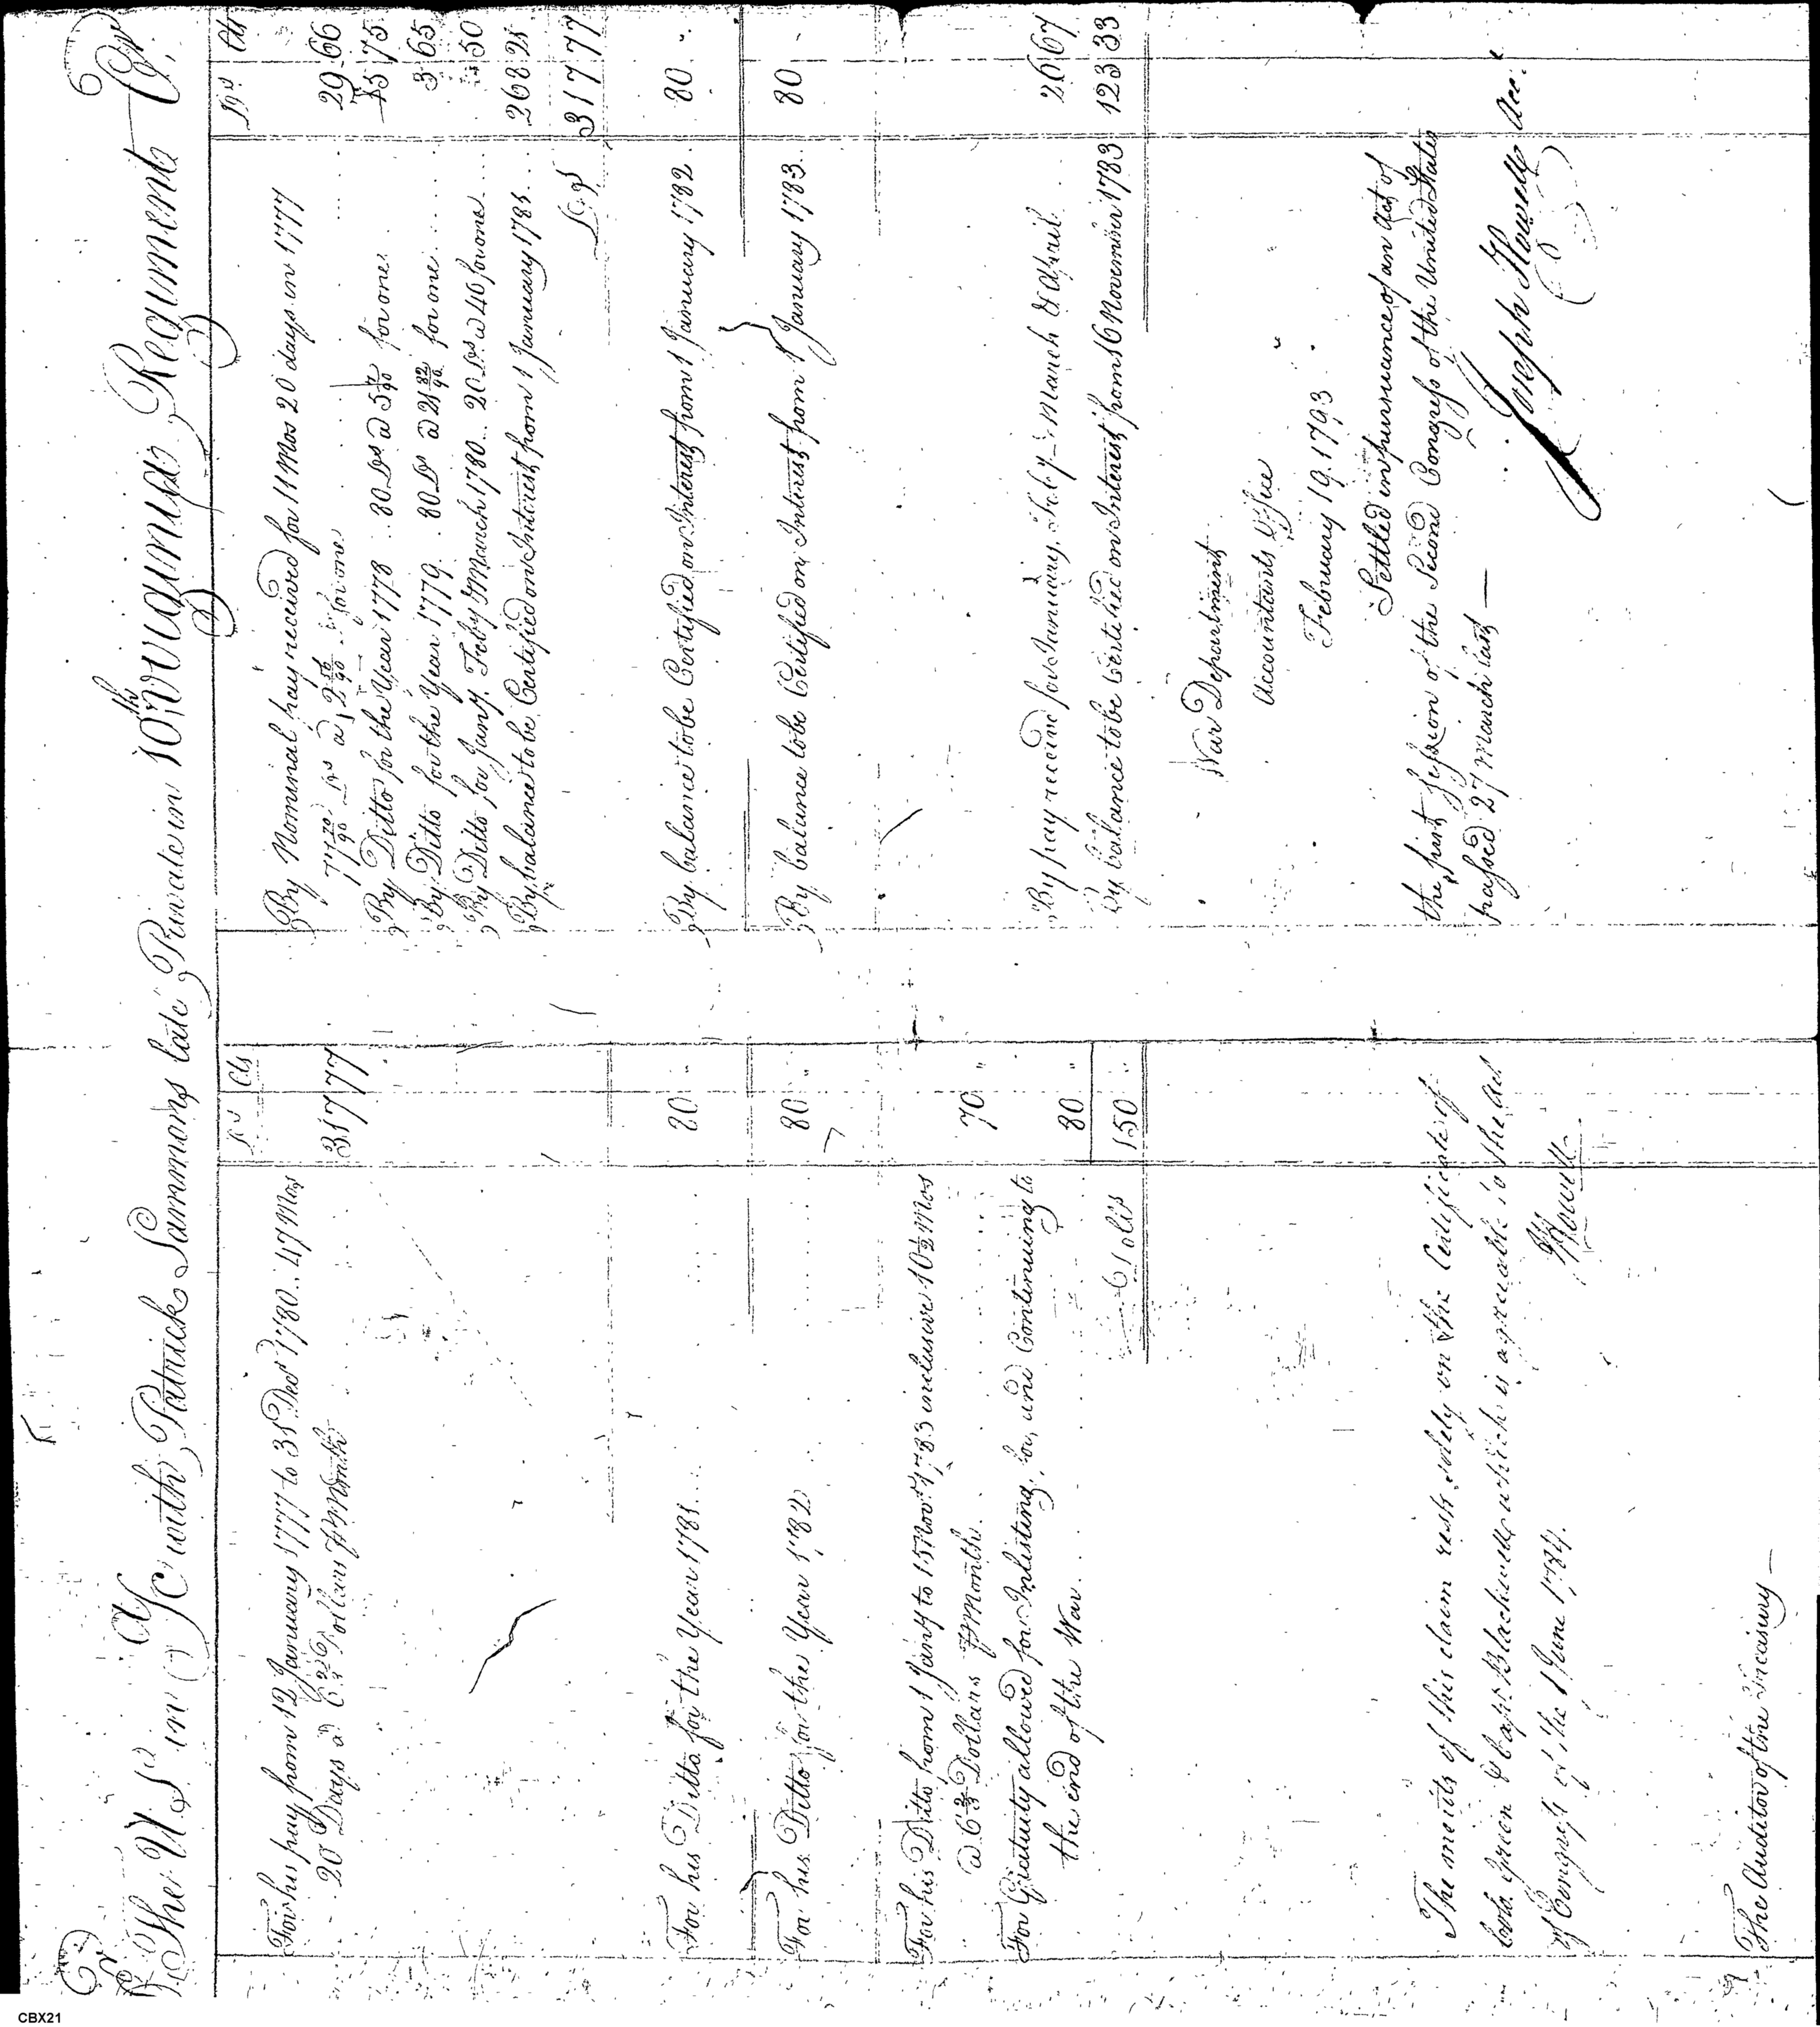 Dr The U S in Ac with Patrick Sammons late Private in 10th Virginia Regiment Cr
Drs Cts
For his pay from 12 January 1777 to 31 Decr 1780.. 47 Mos
20 Days a 6 2/3 Dollars P Month
317 77
For his Ditto for the Year 1781....
80 "
For his Ditto for the Year 1782
80 "
For his Ditto from 1 Jany to 15 Novr 1783 inclusive 10 1/2 Mos
a 6 2/3 Dollars P Month.
70 "
For Gratuity allowed for Inlisting, for, and Continuing to
the end of the War
80 "
150
The merits of this claim rests solely on the Certificate of
Green & Capt Blackwell which is agreeable to the Act
of Congress of the 1 June 1784.
Howell
The Auditor of the Treasury —
Drs Cts
By Nominal pay received for 11 Mos 20 days in 1777
77 70/90 Drs a 2 for one
29 66
By Ditto for the Year 1778 .. 80 Drs a 5 for one
15 75
By Ditto for the Year 1779 .. 80 Drs a 21 82/90 for one
3 65
By Ditto for Jany, Feby & March 1780 .. 20 Drs a 40 for one
50
By balance to be Certified on Interest from 1 January 1781...
268 21
Drs
317 77
By balance to be Certified on Interest from 1 January 1782.
80 "
By balance to be Certified on Interest from 1 January 1783..
80
By pay received for January, Feby March & April
26 67
By balance to be Certified on Interest from 16 November 1783
123 33
War Department
Accountants Office
February 19. 1793
Settled in pursuance of an Act of
the first session of the Second Congress of the United States
passed 27 March last —
Joseph Howell Acct
CBX21